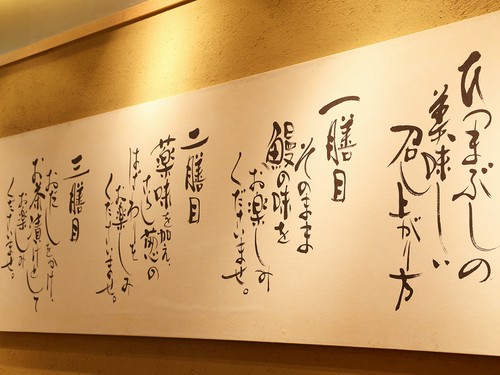 ひつまぶしの
美味しい
召し上がり方
一膳目
そのまま
鰻の味を
お楽しみ
くださいませ。
二膳目
薬味を加え、
さらし葱の
はぎわりを
お楽しみ
くださいませ。
三膳目
おだしをかけ、
お茶漬けとして
お楽しみ
くださいませ。